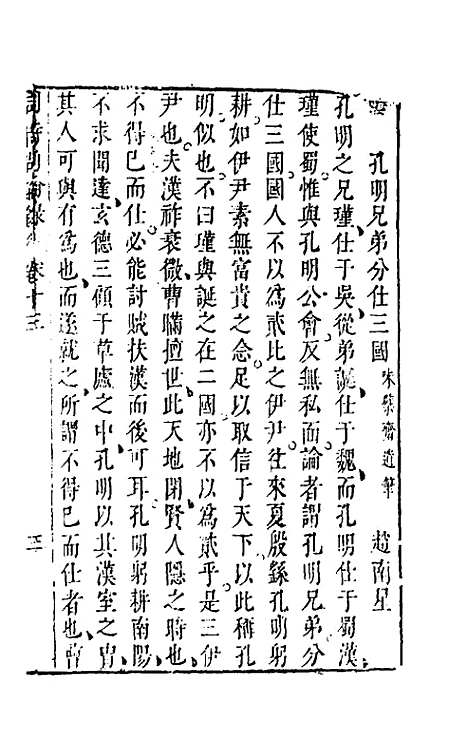 孔明兄弟分仕三國 味檗齋遺筆 趙南星
孔明之兄瑾仕于吳從弟誕仕于魏而孔明仕于蜀漢
瑾使蜀惟與孔明公會反無私面論者謂孔明兄弟分
仕三國國人不以爲貳比之伊尹往來夏殷繇孔明躬
耕如伊尹素無富貴之念足以取信于天下以此稱孔
明似也不曰瑾與誕之在二國亦不以爲貳乎是三伊
尹也夫漢祚衰微曹瞞擅世此天地閉賢人隱之時也
不得已而仕必能討賊扶漢而後可耳孔明躬耕南陽
不求聞達玄德三顧于草廬之中孔明以其漢室之胄
其人可與有爲也而遂就之所謂不得已而仕者也曹
卷十三 三